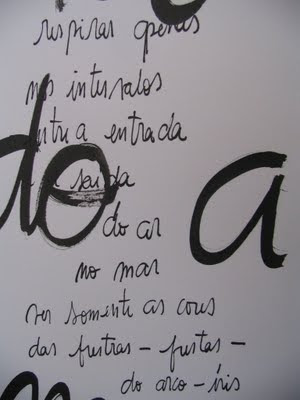 respirar apenas
nos intervalos
entre a entrada
saída
do a
do ar
no mar
ver somente as cores
das frestras – frestas –
do arco-íris